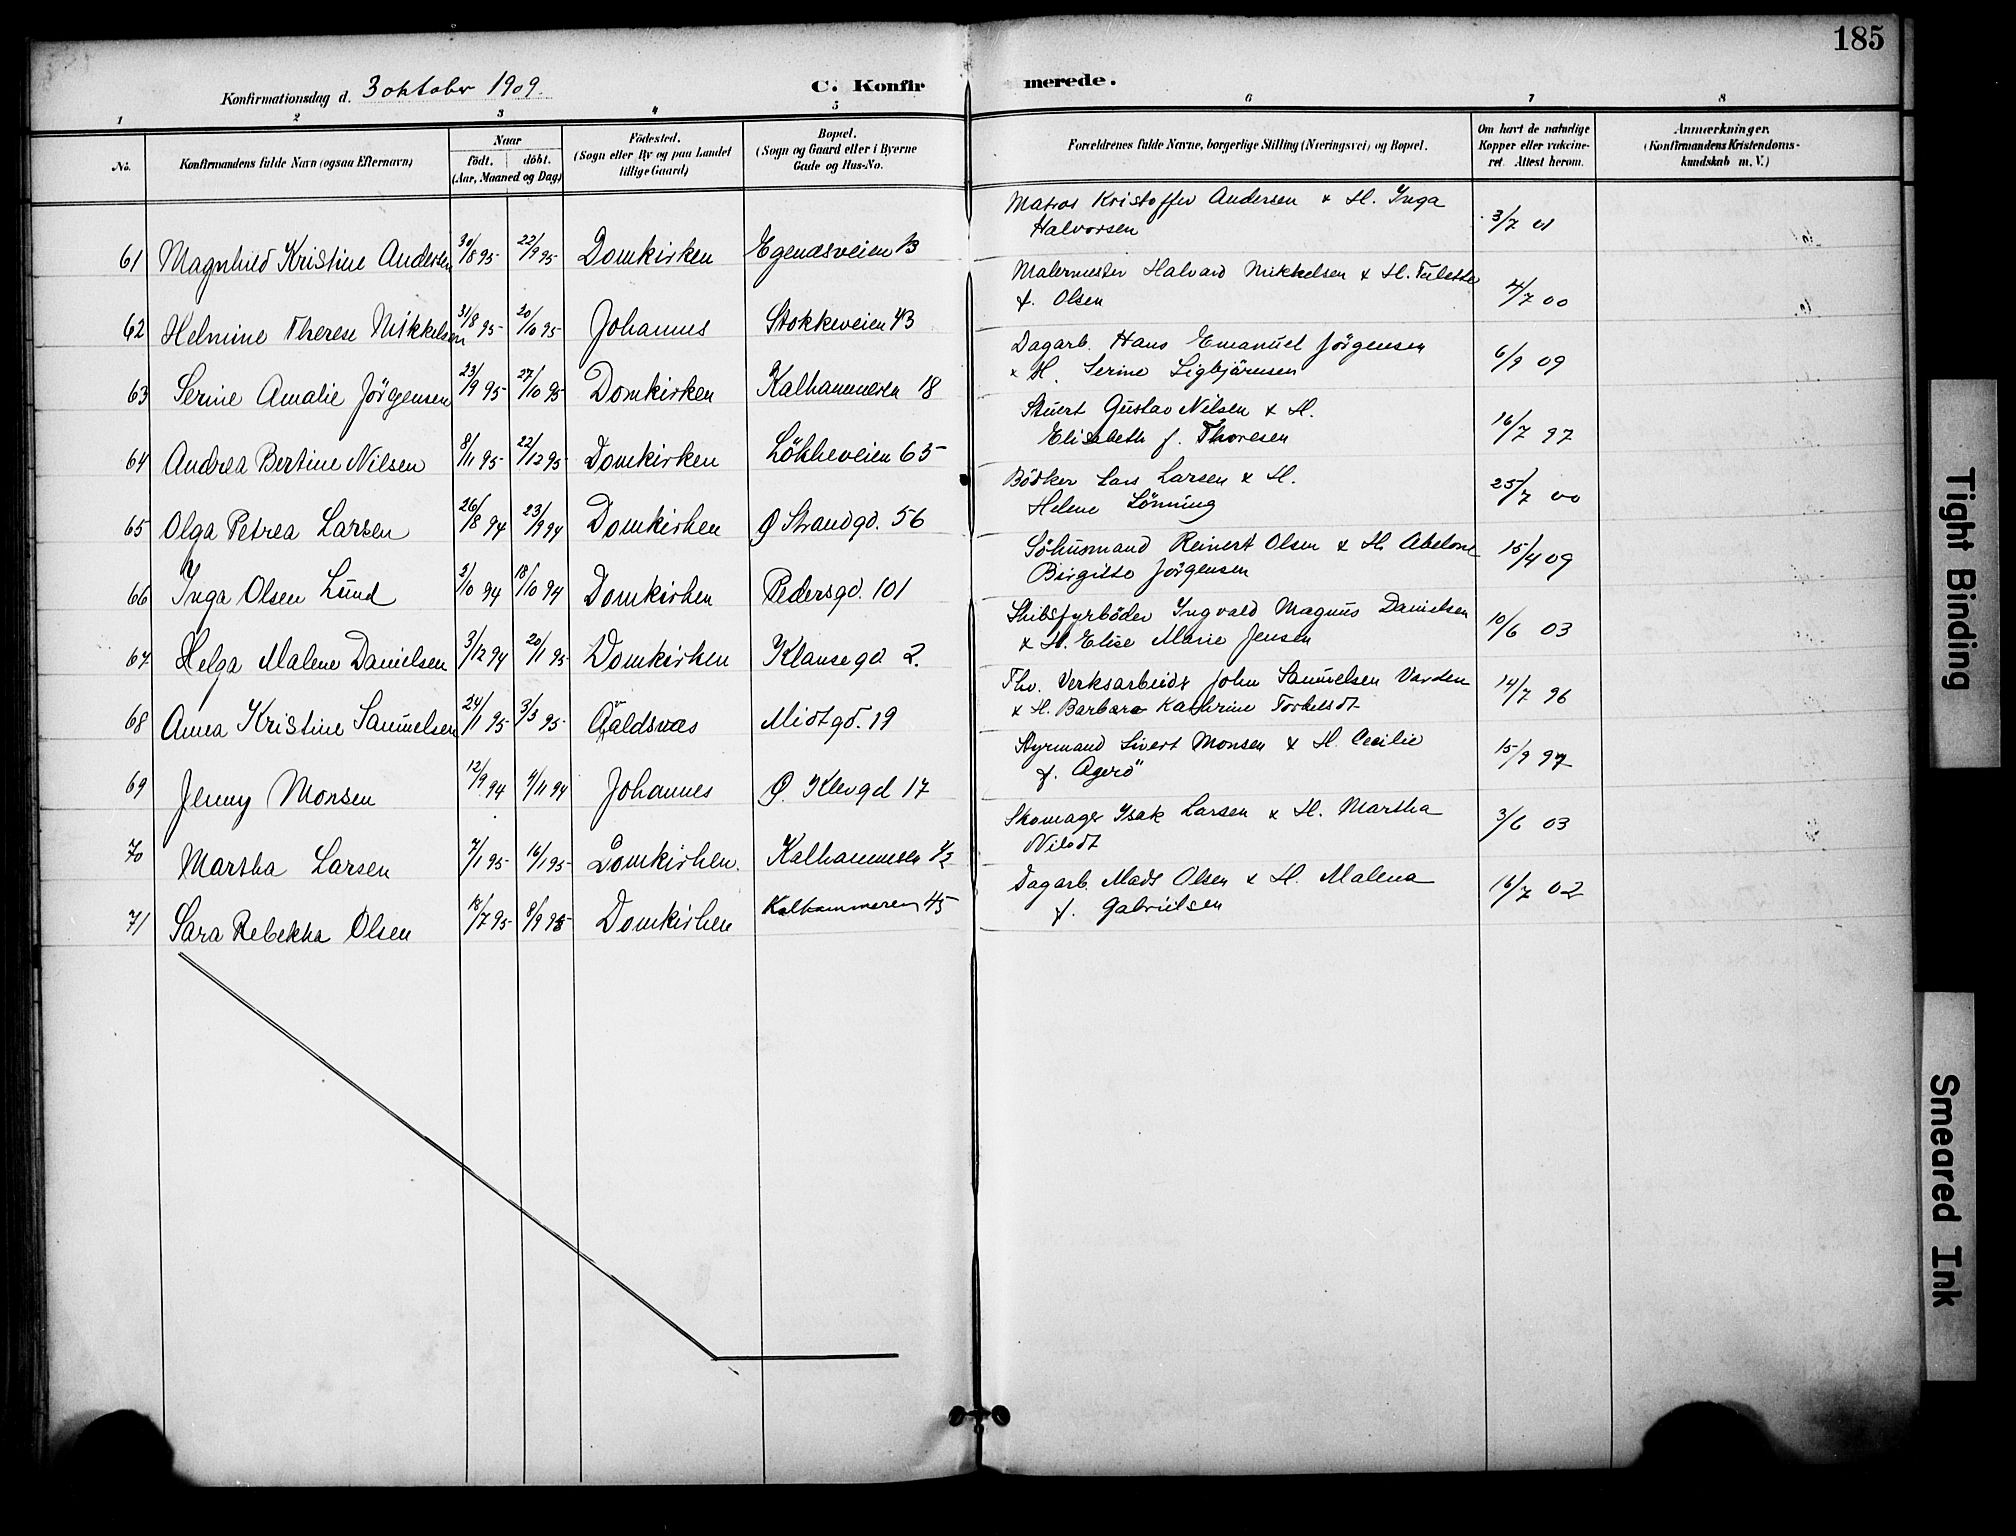 185
Konfirmationsdag d. 3 oktober 1909.
C. Konfirmerede.
1 2 3 4 5 6 7 8
No.
Konfirmandens fulde Navn (ogsaa Efternavn)
Naar
født. døbt.
(Aar, Maaned og Dag)
Födested.
(Sogn eller By og paa Landet
tillige Gaard)
Bopæl.
(Sogn og Gaard eller i Byerne
Gade og Hus-No.
Forældrenes fulde Navne, borgerlige Stilling (Næringsvei) og Bopæl.
Om havt de naturlige
Kopper eller vakcine-
ret. Attest herom.
Anmærkninger.
(Konfirmandens Kristendoms-
kundskab m. V.)
61 Magnhild Kristine Andersen 30/8 95 22/9 95 Domkirken Egenæsveien 13
Matros Kristoffer Andersen & H. Inga
Halvorsen 3/7 01
62 Helmine Therese Mikkelsen 31/8 95 20/10 95 Johannes Stokkeveien 43
Malermester Halvard Mikkelsen & H.
f. Olsen 4/7 00
63 Serine Amalie Jörgensen 23/9 95 27/10 95 Domkirken Kalhammeren 18
Dagarb. Hans Emanuel Jörgensen
& H. Serine Sigbjörnsen 6/9 09
64 Andrea Bertine Nilsen 8/11 95 22/12 95 Domkirken Lökkeveien 65
Stuert Gustav Nilsen & H.
Elisabeth f. Thoresen 16/7 97
65 Olga Petrea Larsen 26/8 94 23/9 94 Domkirken Ø Strandgd. 56
Bödker Lars Larsen & H.
Helene Lönning 25/7 00
66 Inga Olsen Lund 2/10 94 18/10 94 Domkirken Pedersgd. 101
Söhusmand Reinert Olsen & H. Abelone
Birgitte Jörgensen 15/4 09
67 Helga Malene Danielsen 3/12 94 20/1 95 Domkirken Klausegd. 2.
Skibsfyrböder Ingvald Magnus Danielsen
& H. Elise Marie Jensen 10/6 03
68 Anna Kristine Samuelsen 24/1 95 3/3 95 Midtgd. 19
Thv. Verksarbeider John Samuelsen Varden
& H. Barbara Kathrine Torkelsdt 14/7 96
69 Jenny Monsen 12/9 94 4/11 94 Johannes Ø. Klevgd 17
Styrmand Sivert Monsen & H. Cecilie
f. Ageröˮ 15/9 97
70 Martha Larsen 7/1 95 16/1 95 Domkirken. Kalhammeren
Skomager Isak Larsen & H. Martha
Nilsdt 3/6 03
71 Sara Rebekka Olsen 18/7 95 8/9 95 Domkirken Kalhammeren 45
Dagarb. Mads Olsen & H. Malena
f. Gabrielsen 16/7 02
Tight Binding
Smeared Ink